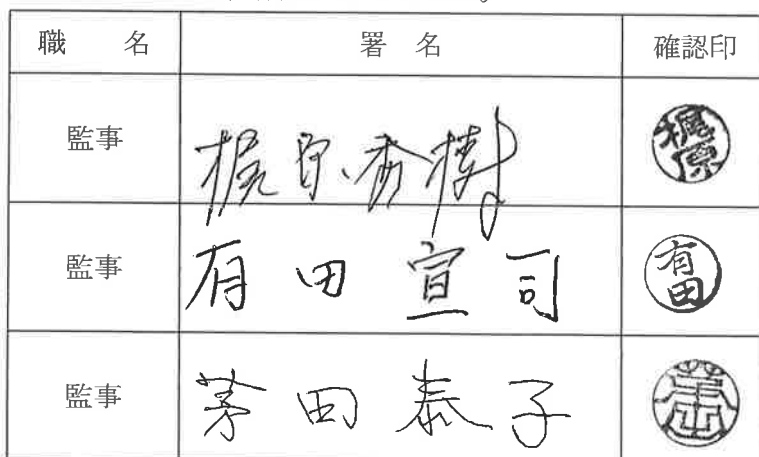 職 名 署 名 確認印
監事 梶原秀樹 梶原
監事 有田宣司 有田
監事 茅田泰子